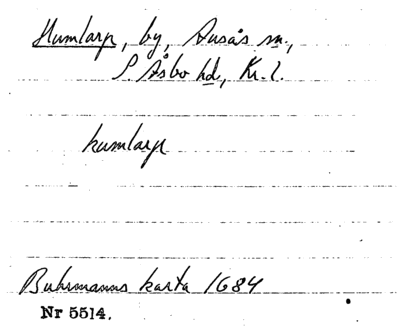 Humlarp, by, Ausås sn.,
S. Åsbo hd, Kr. l.
humlarp
Buhrmanns karta 1684
Nr 5514.